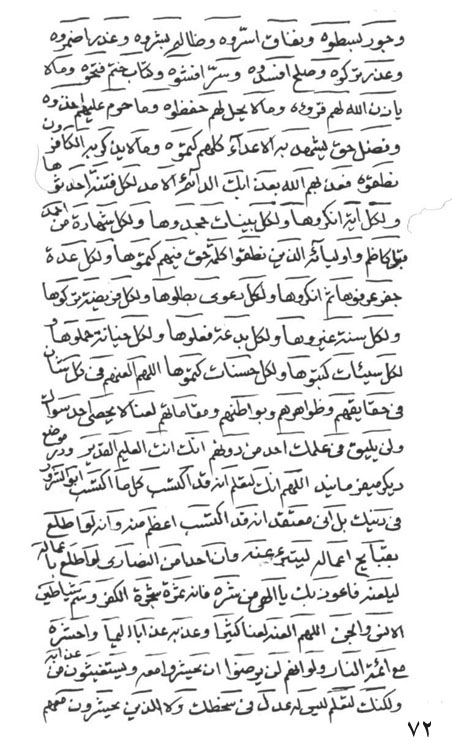 وجور بسطوه ونفاق اسرّوه وظالم بشروه وعدر اضمروه
وعدر تركوه وصلح افسدوه وسرّ افشوه وكتاب ختم فتحوه وما لا
ياذن الله لهم قروه وما لا يحل لهم حفظوه وما حرم عليهم اخذوه
وفضل حق ليشهدن به الاعداء كلهم كتموه وما لا يدركوا به الكافرون
نطقوه فعذبهم الله بعذابك الدائم الابد لكل فتنة احدثوها
ولكل آية انكروها ولكل بينات جحدوها ولكل شهادة من احمد
قبل كاظم واوليائه الذين نطقوا كلمة حق فيهم كتموها ولكل عدة
جفر عرفوها ثم انكروها ولكل دعوى بطلوها ولكل فريضة تركوها
ولكل سنة غيروها ولكل بدعة فعلوها ولكل خيانة حملوها و
لكل سيئات كسبوها ولكل حسنات كتموها اللهم العنهم في كل شان
في حقايقهم وظواهرهم وبواطنهم ومقاماتهم لعنا لا يحصى احد سواك
ولن يليق في علمك احد من دونهم انك انت العليم القدير ودر موضع
ديگر ميفرمايند اللهم انك لتعلم انه قد اكتسب كل ما اكتسب ابو الشرور
في دينك بل انى معتقد انه قد اكتسب اعظم منه وانه لو اطلع
بقبايح اعماله ليتبرء عنه وان احدا من النصارى لو اطلع باعماله
ليلعنه فاعوذ بك يا الهى من شره فانه ثمرة شجرة الكفر وسم شياطين
الانس والجن اللهم العنه لعنا كثيرا وعذبه عذابا اليما واحشره
مع ائمة النار ولو انهم لن يرضوا ان يحشروا معه ويستغيثون من عذابه
ولكنك لتعلم ليس له عدلك في سخطك ولا الذين يحشرون معهم
٧٢